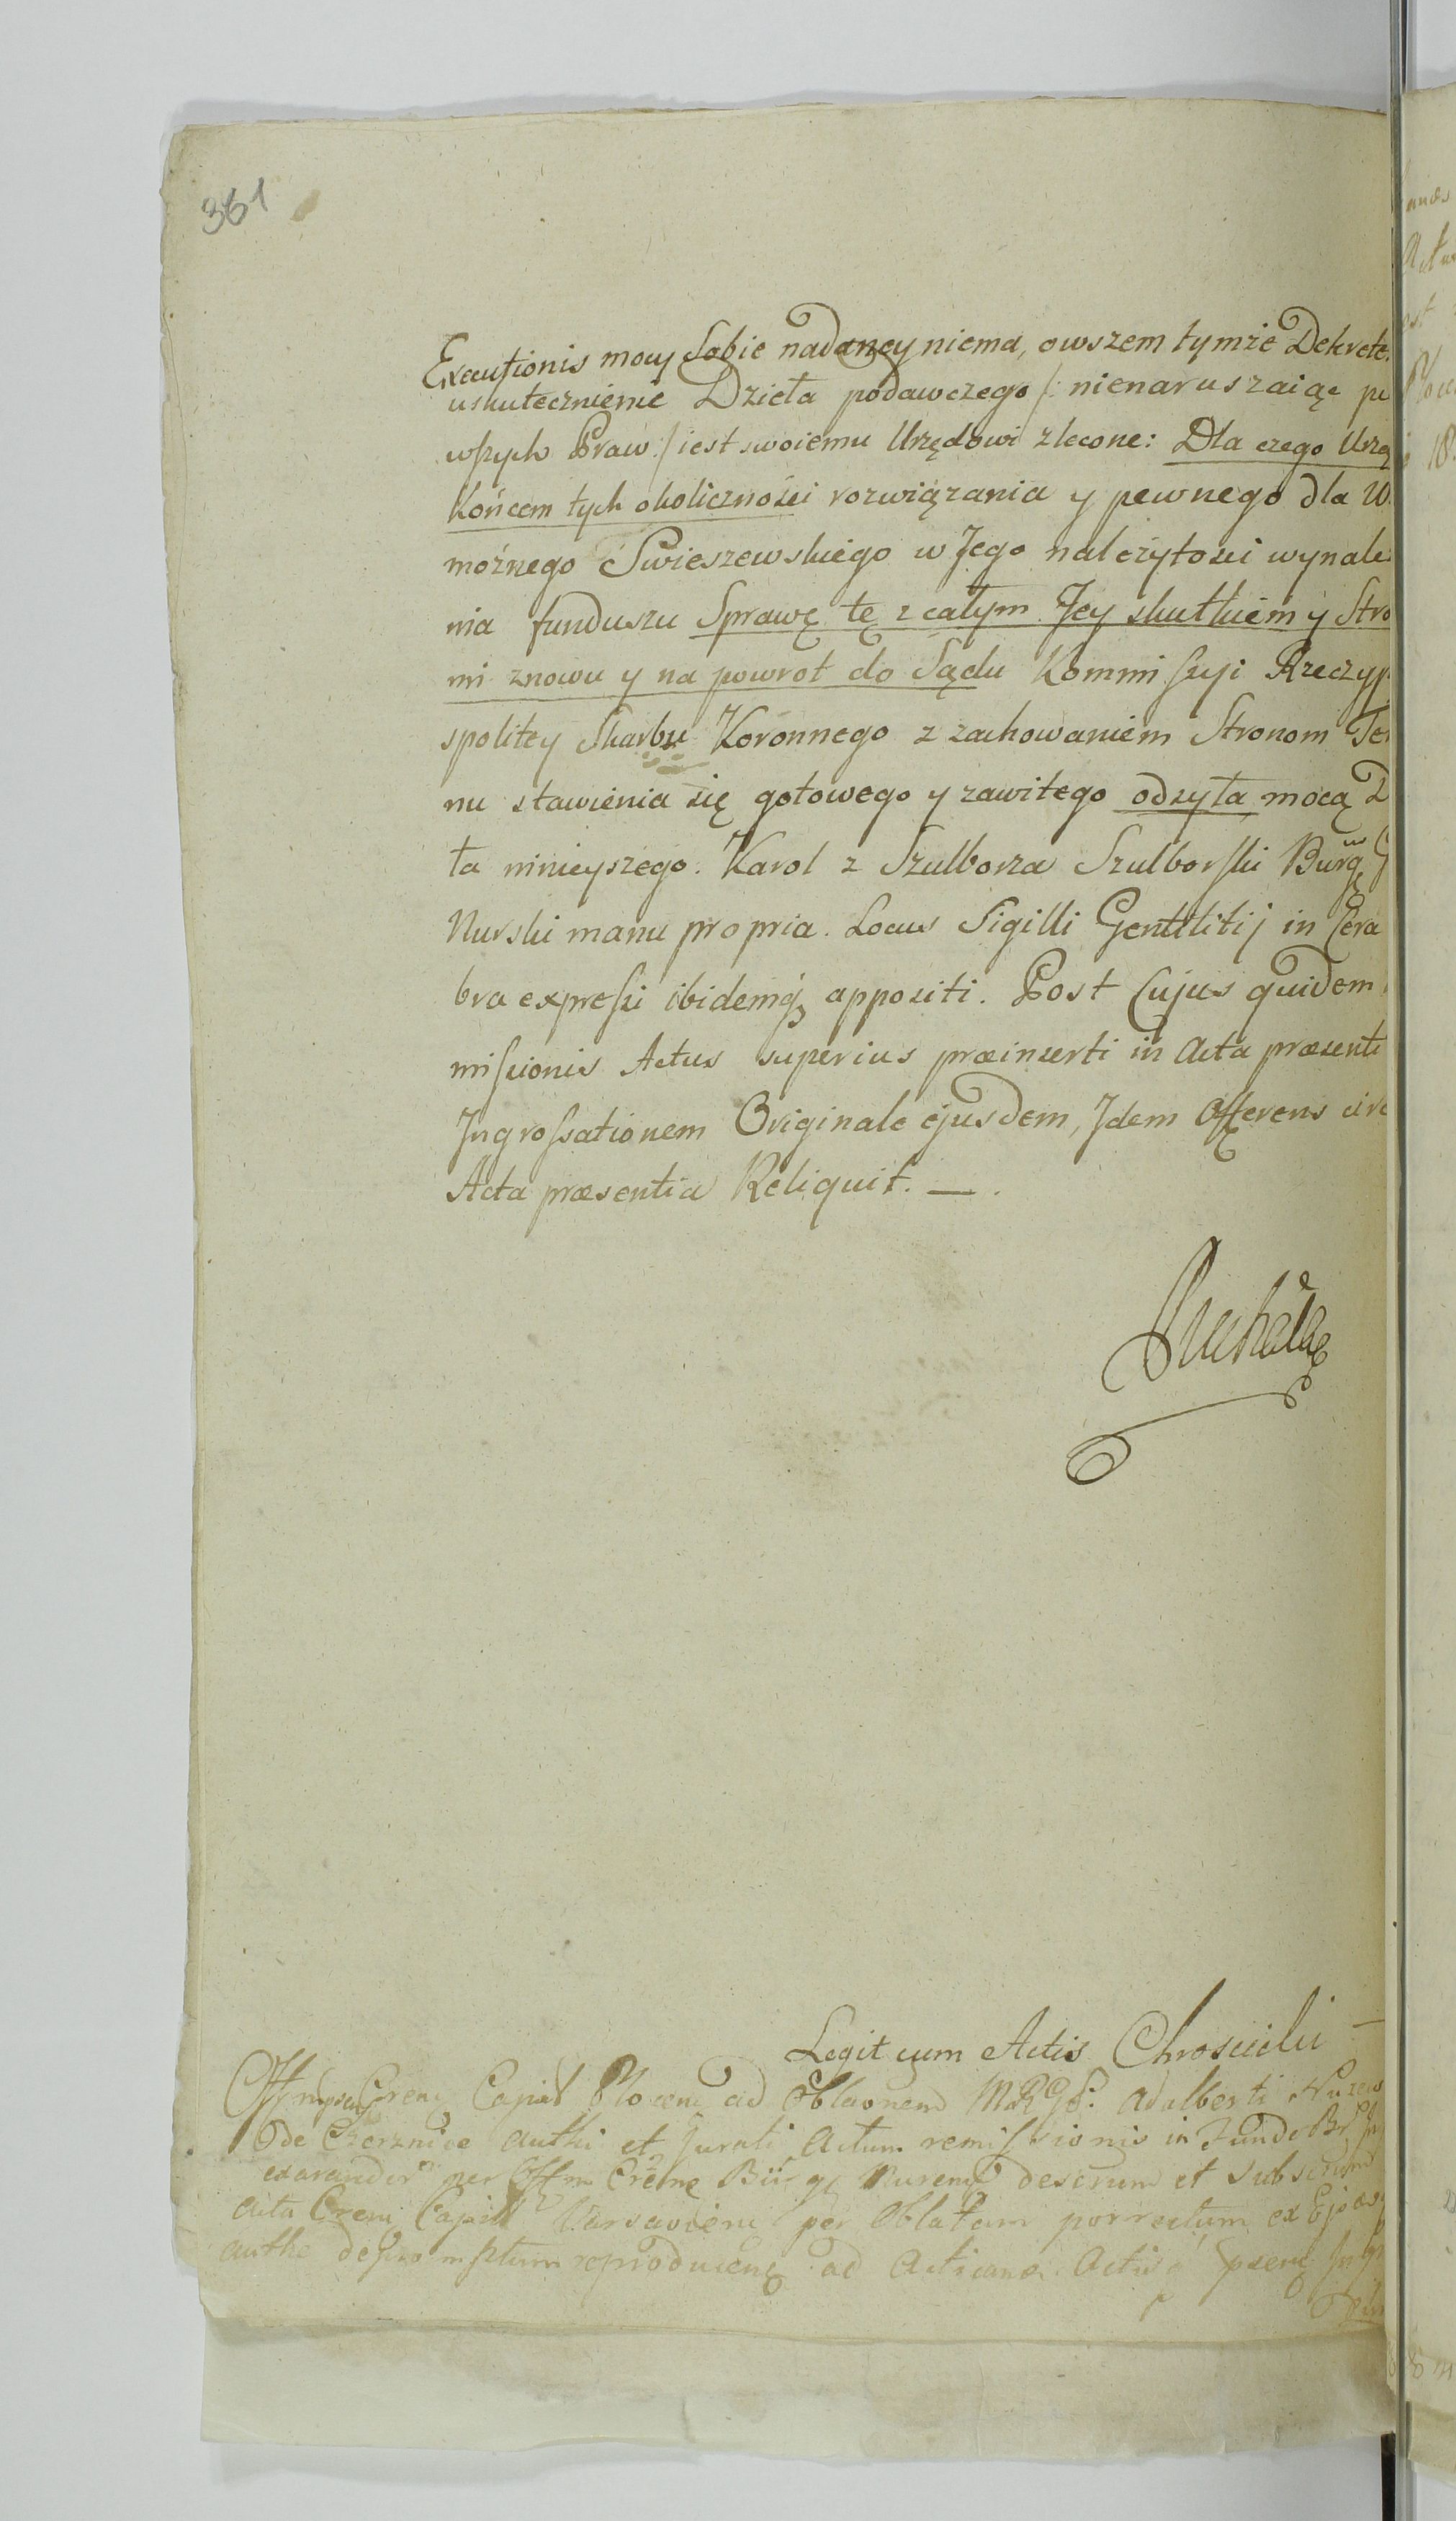 361
Executionis mocy Sobie nadaney niema, owszem tymże Dekrete
uskutecznienie Dzieła podawczego /: nienaruszaiąc pe
wszych Praw :/ iest swoiemu Urzędowi zlecone: Dla czego Urzą
Końcem tych okoliczności rozwiązania y pewnego dla W
możnego Swieszewskiego w Jego należytości wynale
nia funduszu Sprawę tę z całym Jey skutkiem y Stro
mi znowu y na powrot do Sądu Kommissyi Rzeczyp
spolitey Skarbu Koronnego z zachowaniem Stronom Ter
nu stawienia się gotowego y zawitego odsyła mocą D
ta ninieyszego. Karol z Szulborza Szulborski Burg G
Nurski manu propria. Locus Sigilli Gentilitij in Cera
bra expressi ibidemq appositi. Post Cujus quidem
missionis Actus superius præinserti in Acta præsenti
Ingrossationem Originale ejusdem, Idem Offerens circ
Acta præsentia Reliquit. —.
Legit cum Actis Chroscicki
Capit Plocen ad Oblaonem Adalberti
de Czerznice authi et Jurati Actum remissionis in Fundo
per Offm Burg Nuren descrum et subscrum
Acta Capit Varsavien per Oblatam porrectum ex
authe ad Acticand